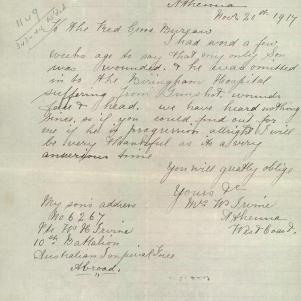 Athenna
Nov 20th 1917
To the Red Cross Bureau
I had word a few
weeks ago to say that my only son
was wounded & he was omitted
in to the Biringham Hospital
suffering from Gunshot wounds
face & head. we have heard nothing
since, so if you could find out for
me if he is progression allright I will
be very thankful as its a very
anxerious time
You will greatly oblige
Yours &c
Mrs Wm Irvine
Athenna
West Coast.
My son's address
No 6267
Pte Wm H Irvine
10th Battalion
Australian Imperial Forces
Abroad.